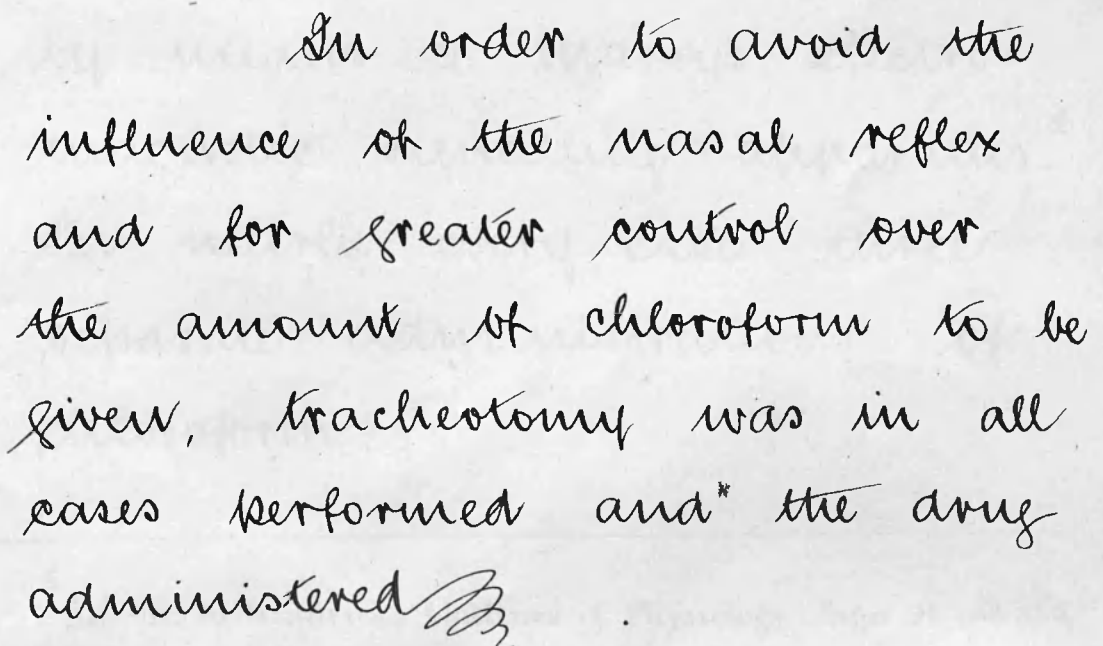 In order to avoid the
influence of the nasal reflex
and for greater control over
the amount of chloroform to be
given, tracheotomy was in all
cases performed and* the drug
administered